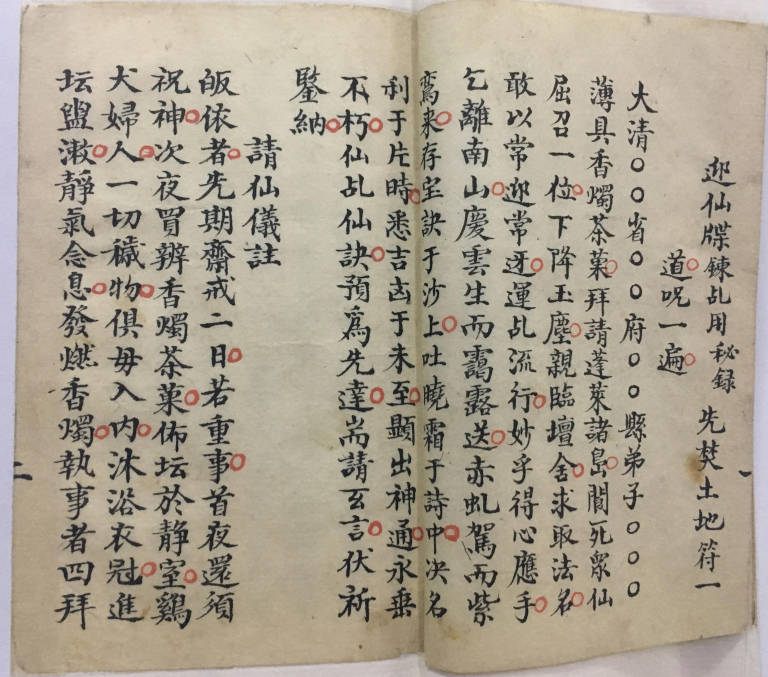 迎仙牒鍊乩用秘録 先焚土地符一
道呪一遍
大清〇〇省〇〇府〇〇縣弟子〇〇〇
薄具香燭茶菓拜請蓬萊諸島閬死衆仙
屈召一位下降玉塵親臨壇舍求取法名
敢以常迎常迓運乩流行妙乎得心應手
乞離南山慶雲生而靄露送赤虬駕而紫
鸞来存宝訣于沙上吐曉霜于詩中决名
利于片時悉吉凶于未至顕出神通永垂
不朽仙乩仙訣預爲先達耑請玄言伏祈
鑒納
請仙儀註
皈依者先期齋戒二日若重事首夜還須
祝神次夜買辨香燭茶菓佈坛於静室鷄
犬婦人一切穢物俱毋入内沐浴衣冠進
坛盥漱靜氣念息發燃香燭執事者四拜
二